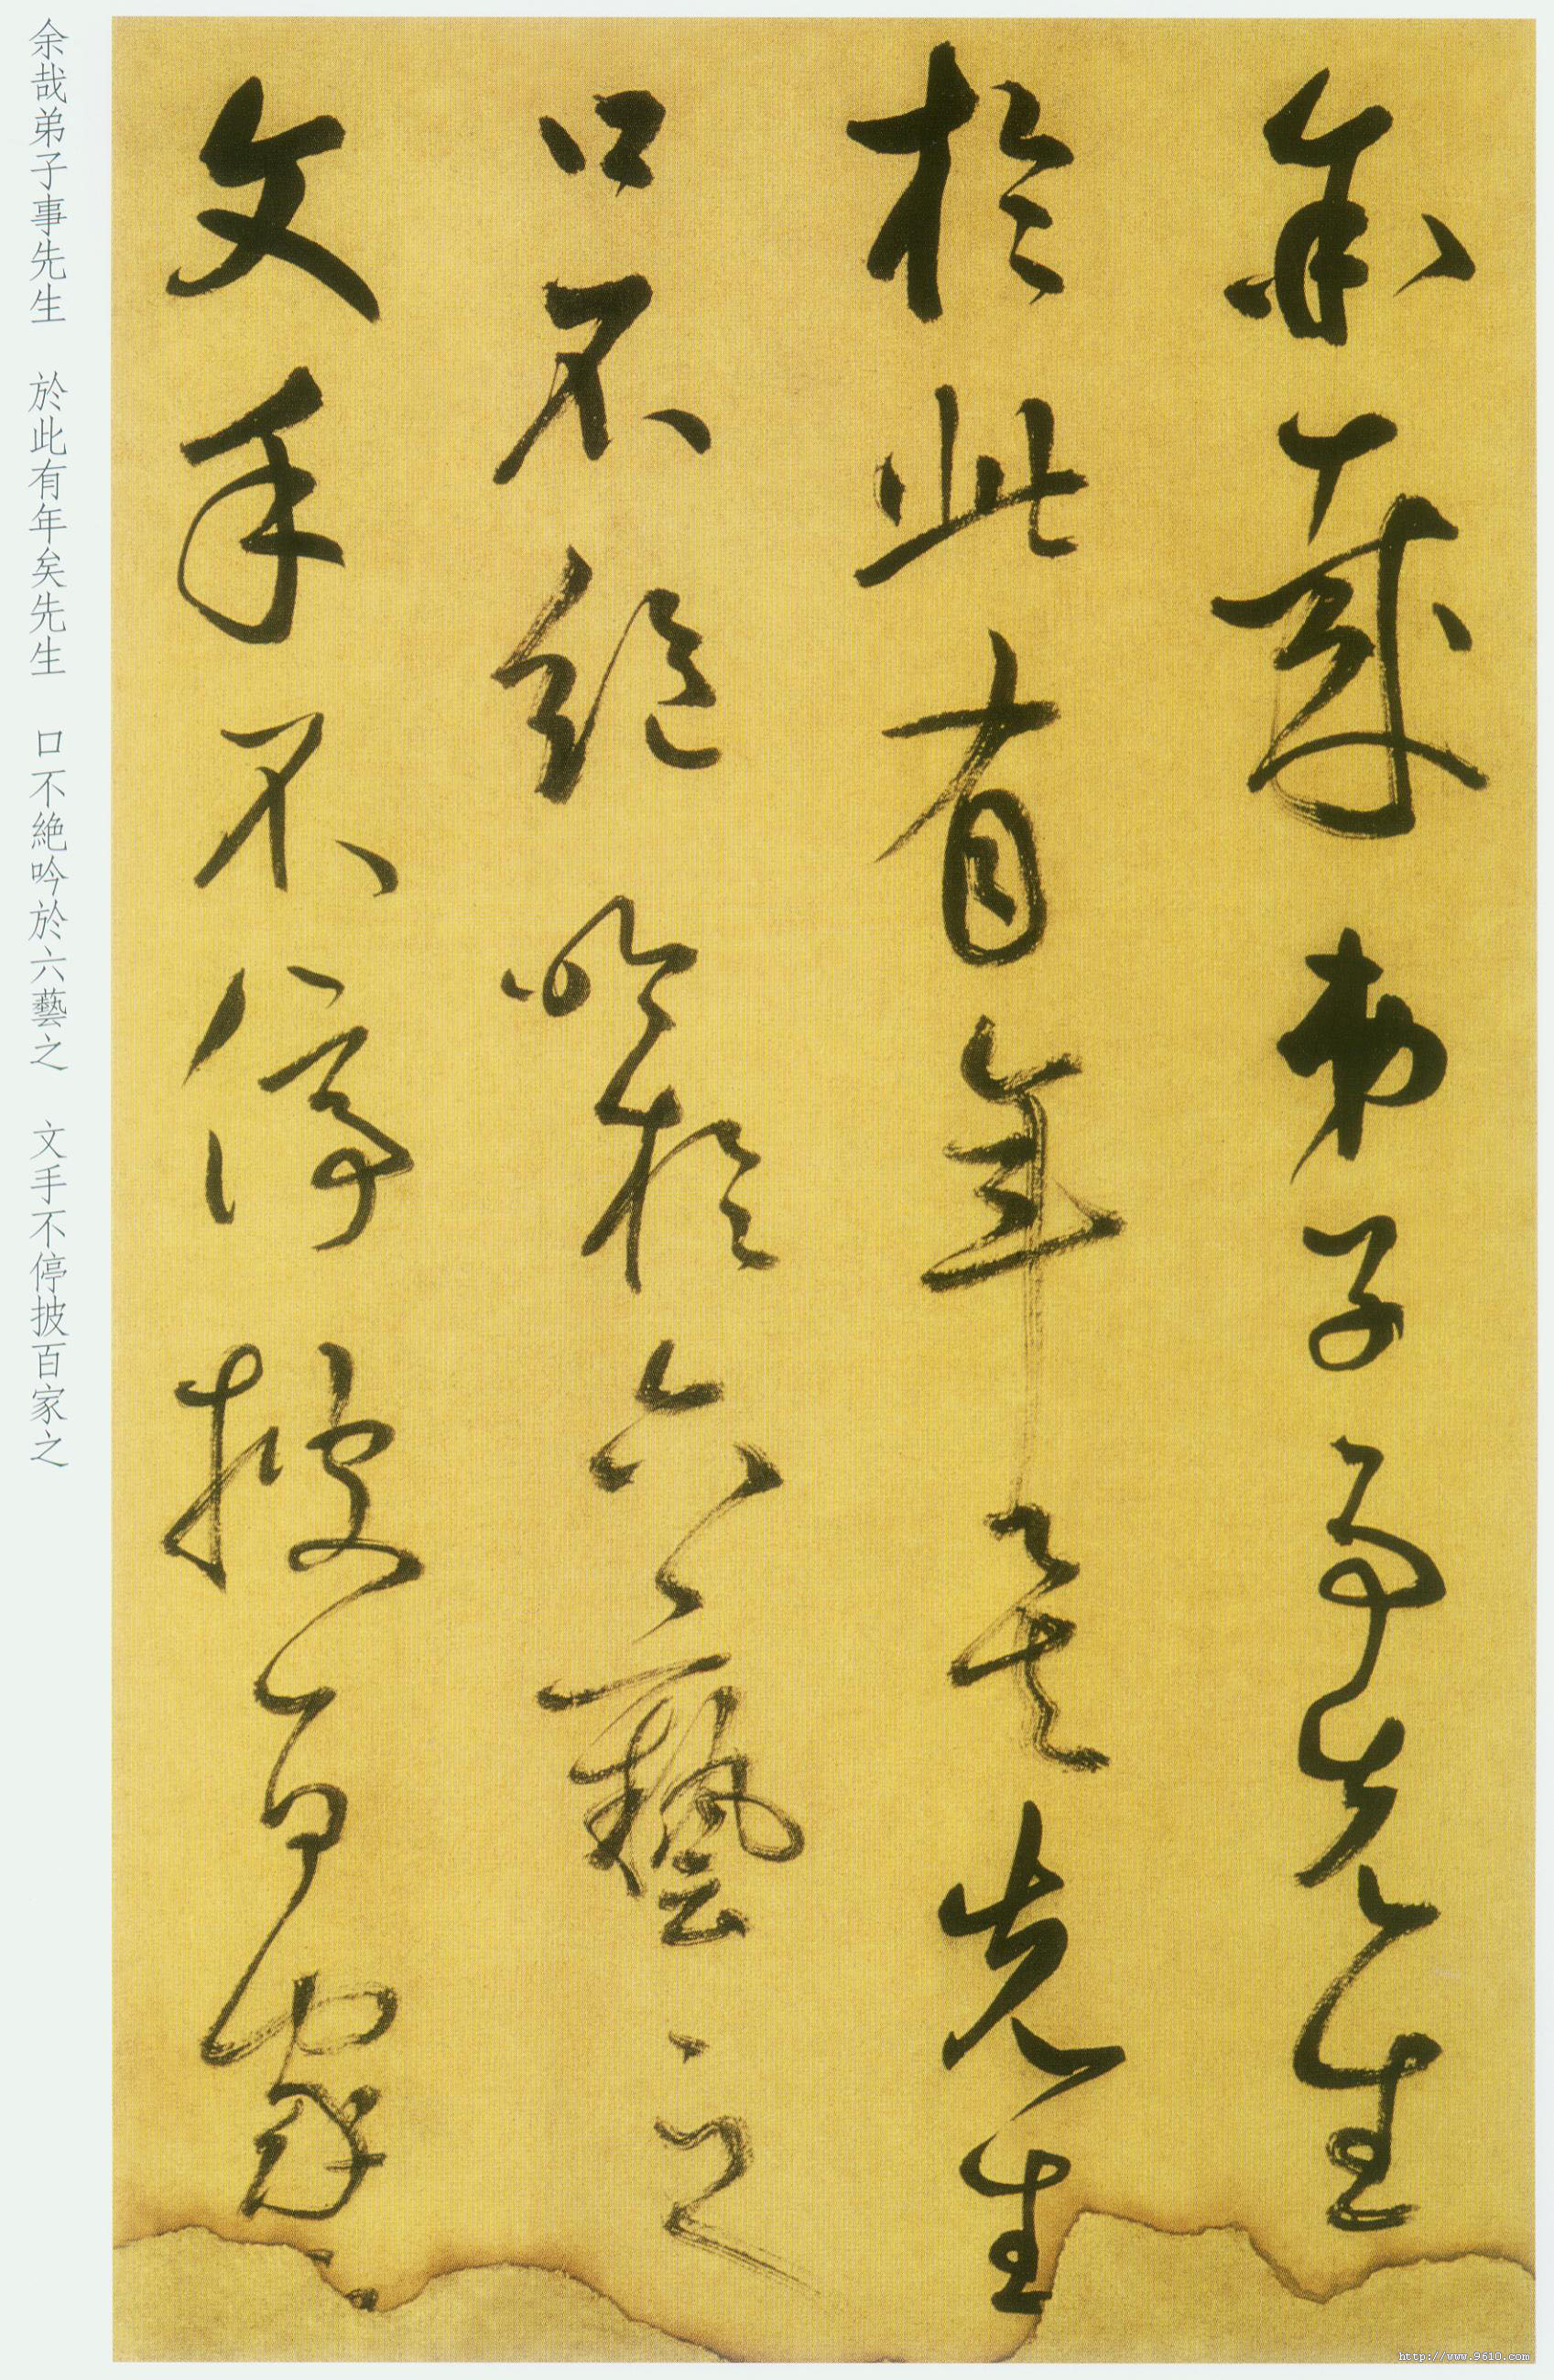 余哉弟子事先生
於此有年矣先生
口不絶吟於六藝之
文手不停披百家之
余哉弟子事先生　於此有年矣先生　口不絶吟於六藝之　文手不停披百家之
http://www.9610.com